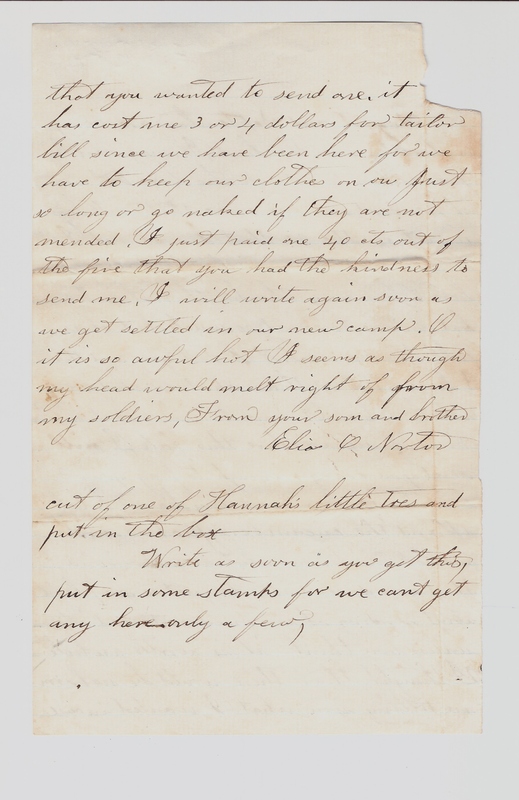 that you wanted to send one. it
has cost me 3 or 4 dollars for tailor
bill since we have been here for we
have to keep our clothes on or just
so long or go naked if they are not
mended. I just paid one 40 cts out of
the five that you had the kindness to
send me. I will write again soon as
we get settled in our new camp. O
it is so awful hot I seems as though
my head would melt right of from
my soldiers, From your son and brother
Elia O Norton
cut of one of Hannah's little toes and
put in the box
Write as soon as you get this,
put in some stamps for we cant get
any here only a few,